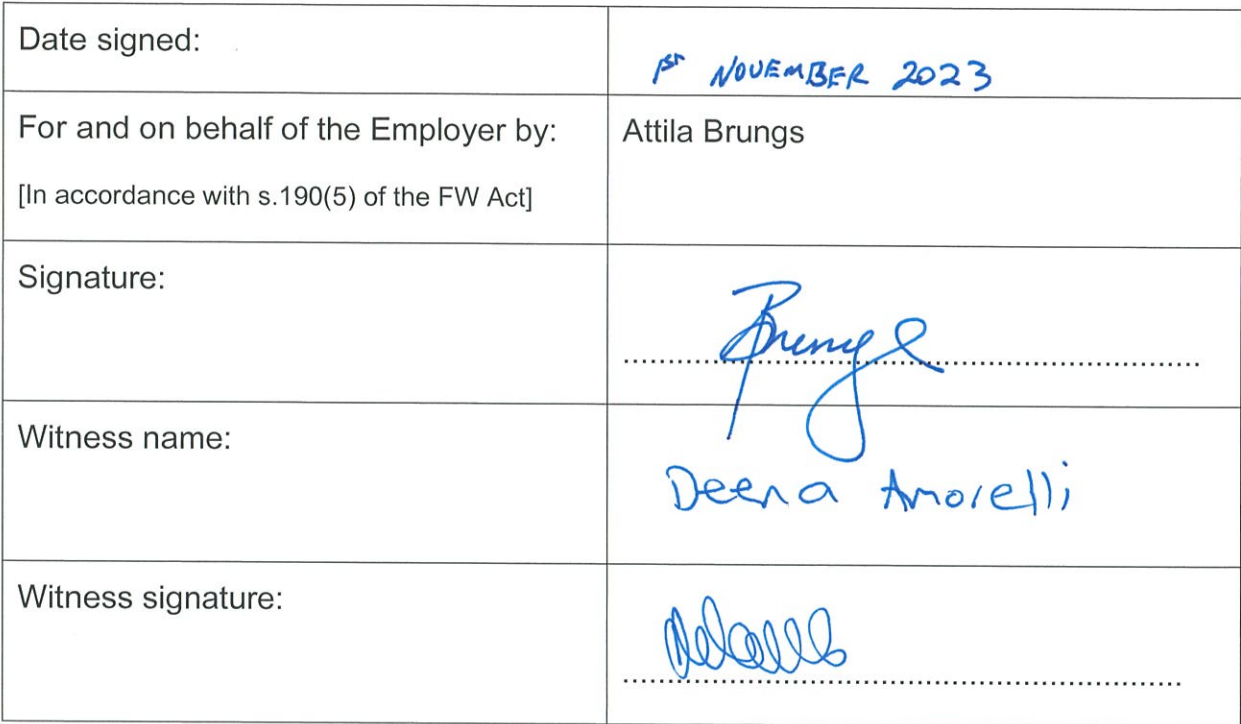 Date signed:
1ST NOVEMBER 2023
For and on behalf of the Employer by:
Attila Brungs
[In accordance with s.190(5) of the FW Act]
Signature:
Brungs
Witness name:
Deena Amorelli
Witness signature: